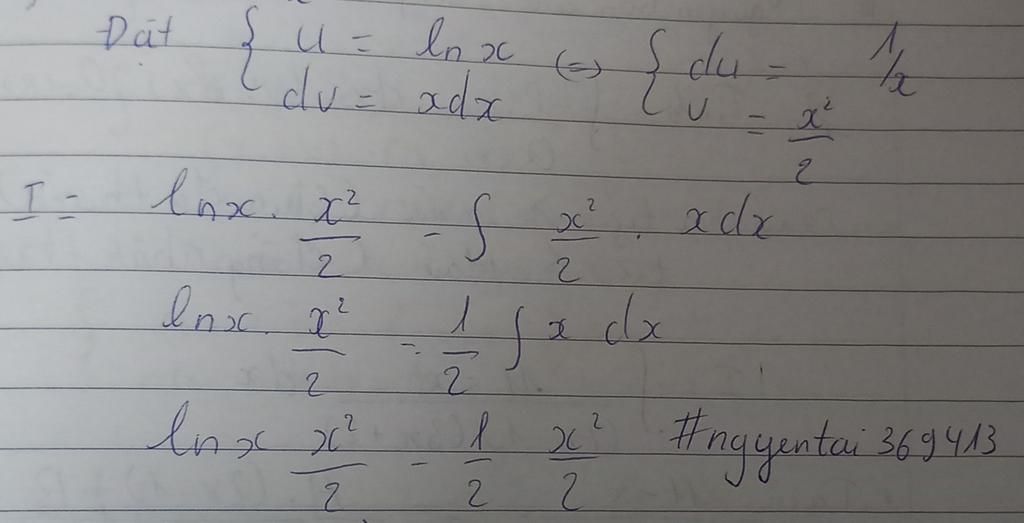 Đặt { u = lnx <=> { du = 1/x
dv = xdx v = x²/2
I = lnx. x²/2 - ∫ x²/2 . xdx
lnx. x²/2 - 1/2 ∫ x dx
lnx x²/2 - 1/2 x²/2 #ngyentai369413